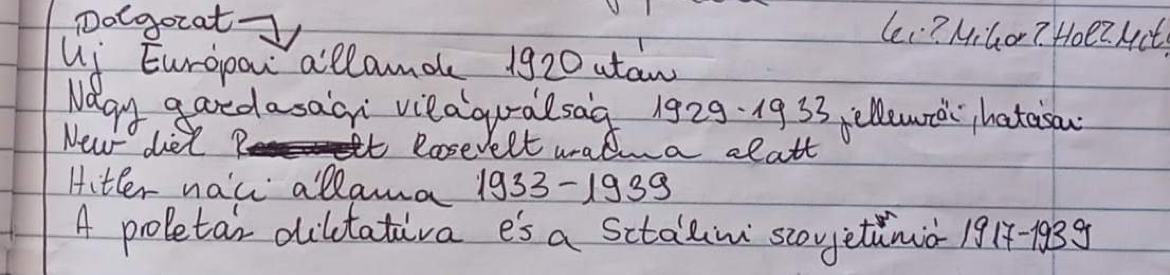 Dolgozat → Ki? Mikor? Hol? Mit?
Új Európai államok 1920 után
Nagy gazdasági világválság 1929-1933 jellemzői, hatásai
New diel Roosevelt uralma alatt
Hitler náci állama 1933-1939
A proletár diktatúra és a Sztálini szovjetúnió 1917-1939